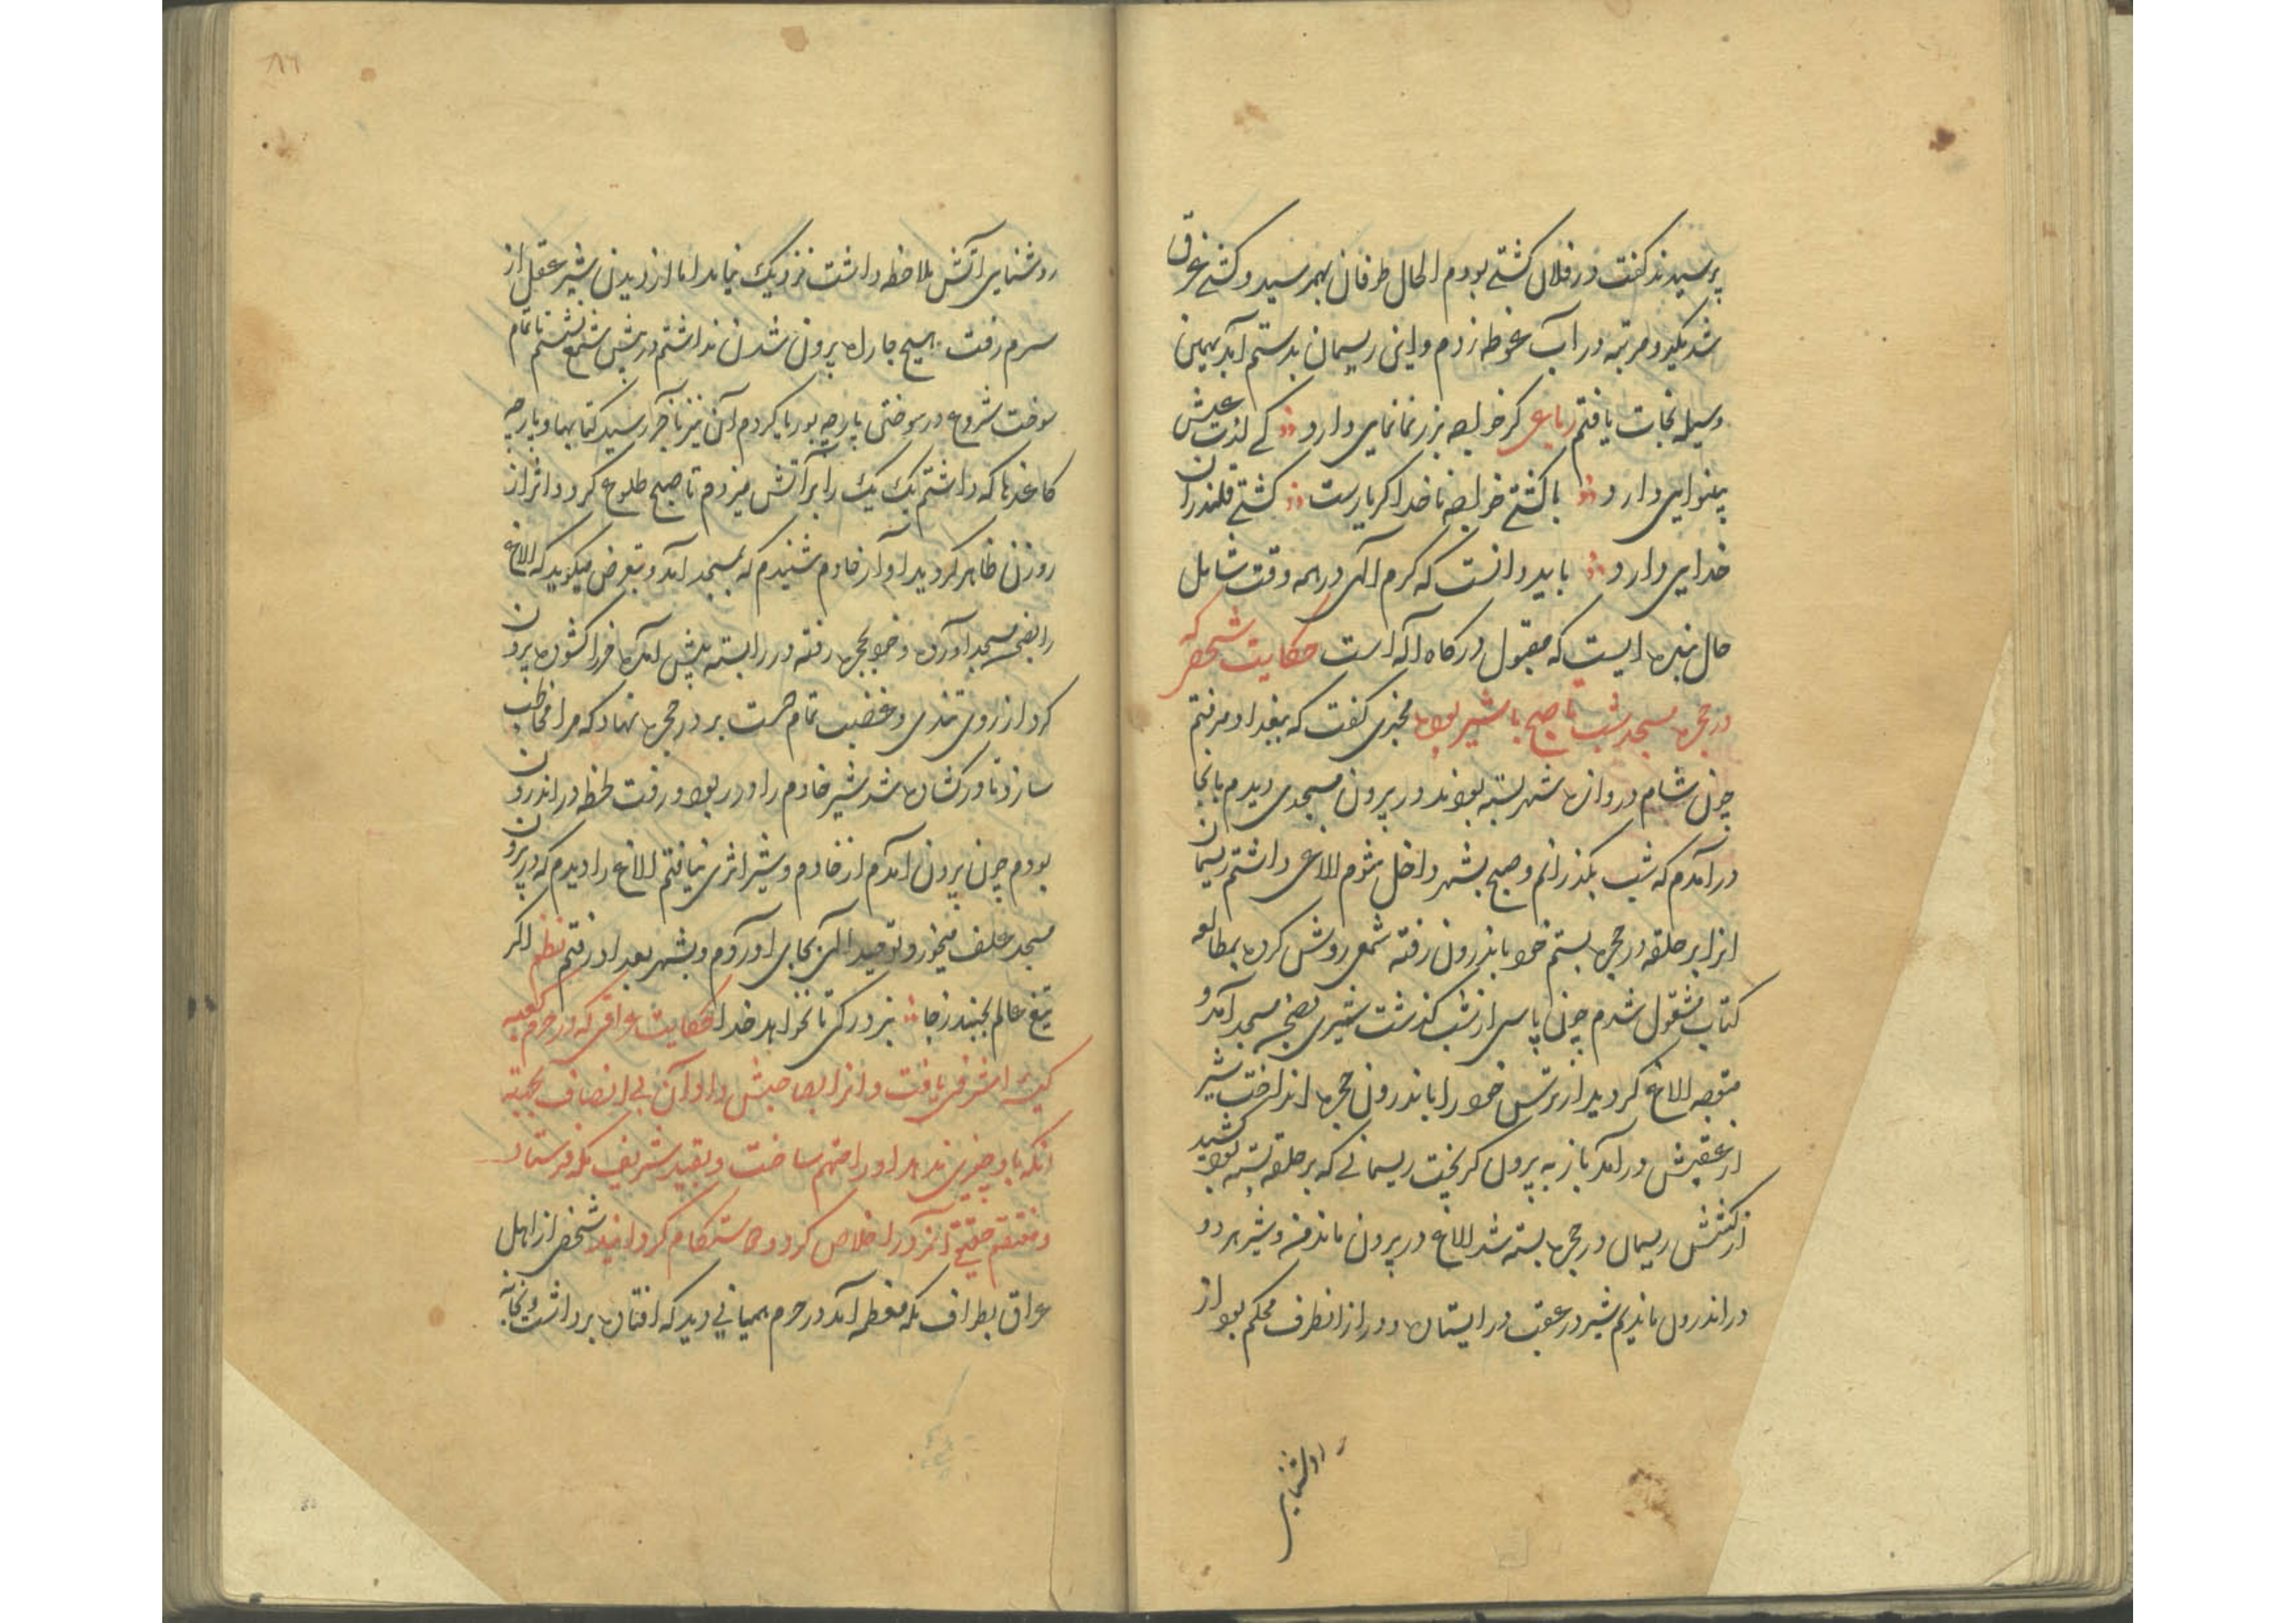 پرسیدند کفت در فلان کشتے بودم الحال طوفان بهمرسید و کشتے غرق
شد یکدو مرتبه در آب غوطه زدم و این ریسمان بدستم آمد بهمین
وسیله نجات یافتم رباعی کر خواجه بزر نمانمایی دارد کے لذت عیش
بینوایی دارد با کشتے خواجه ناخدا کر یارست کشتے قلندران
خدایی دارد باید دانست که کرم الهی در همه وقت شامل
حال بنده ایست که مقبول درکاه آله است حکایت شخصی که
در حجره مسجد شب تا صبح با شیر بوده مخبری کفت که ببغداد میرفتم
چون شام دروازه شهر بسته بودند در بیرون مسجدی دیدم بانجا
درآمدم که شب بکذرانم و صبح بشهر داخل شوم الاغی داشتم ریسمان
انرا بر حلقه در حجره بستم خود باندرون رفته شمعی روشن کرده بمطالعه
کتاب مشغول شدم چون پاسی از شب کذشت شیری بصحن مسجد آمد و
متوجه الاغ کردید از ترس خود را باندرون حجره انداخت شیر
از عقبش درآمد باز به بیرون کریخت ریسمانے که بر حلقه بسته بود کشید
از کشش ریسمان در حجره بسته شد الاغ در بیرون ماند من و شیر هر دو
در اندرون ماندیم شیر در عقب در ایستاده و در از انطرف محکم بود از
روشنایی
۸۶
روشنایی آتش ملاحظه داشت نزدیک نیامد اما از دیدن شیر عقل از
سرم رفت هیچ چاره بیرون شدن نداشتم در پیش شمع نشستم تا تمام
سوخت شروع در سوختن پارچه بوریا کردم آن نیز باخر رسید کتابها و پارچه
کاغذها که داشتم یک یک را بر آتش میزدم تا صبح طلوع کرد و اثر از
روزن ظاهر کردید آواز خادم شنیدم که بمسجد آمد و تعرض میکوید که الاغ
را بصحن مسجد آورده و خود بحجره رفته در را بسته پیش آمده در را کشوده بیرون
کرد از روی تندی و غضب تمام دست بر در حجره نهاد که مرا مخاطب
سازد تا در کشاده شد شیر خادم را در ربود و رفت لحظه در اندرون
بودم چون بیرون آمدم از خادم و شیر اثری نیافتم الاغ را دیدم که در بیرون
مسجد علف میخورد توحید الهی بجای آوردم و بشهر بغداد رفتم نظم اکر
تیغ عالم بجنبد ز جا نبرد رکی تا نخواهد خدا حکایت عراقی که در حرم کعبه
کیسه اشرفی یافت و انرا بصاحبش داد و آن بی انصاف بجهة
انکه باو چیزی ندهد او را متهم ساخت و بقید شریف مکه فرستاد
و منتقم حقیقے آنرا خلاص کرد و کردانید شخصی از اهل
عراق بطواف مکه معظمه آمد در حرم همیانی دید که افتاده برداشت و بخانه